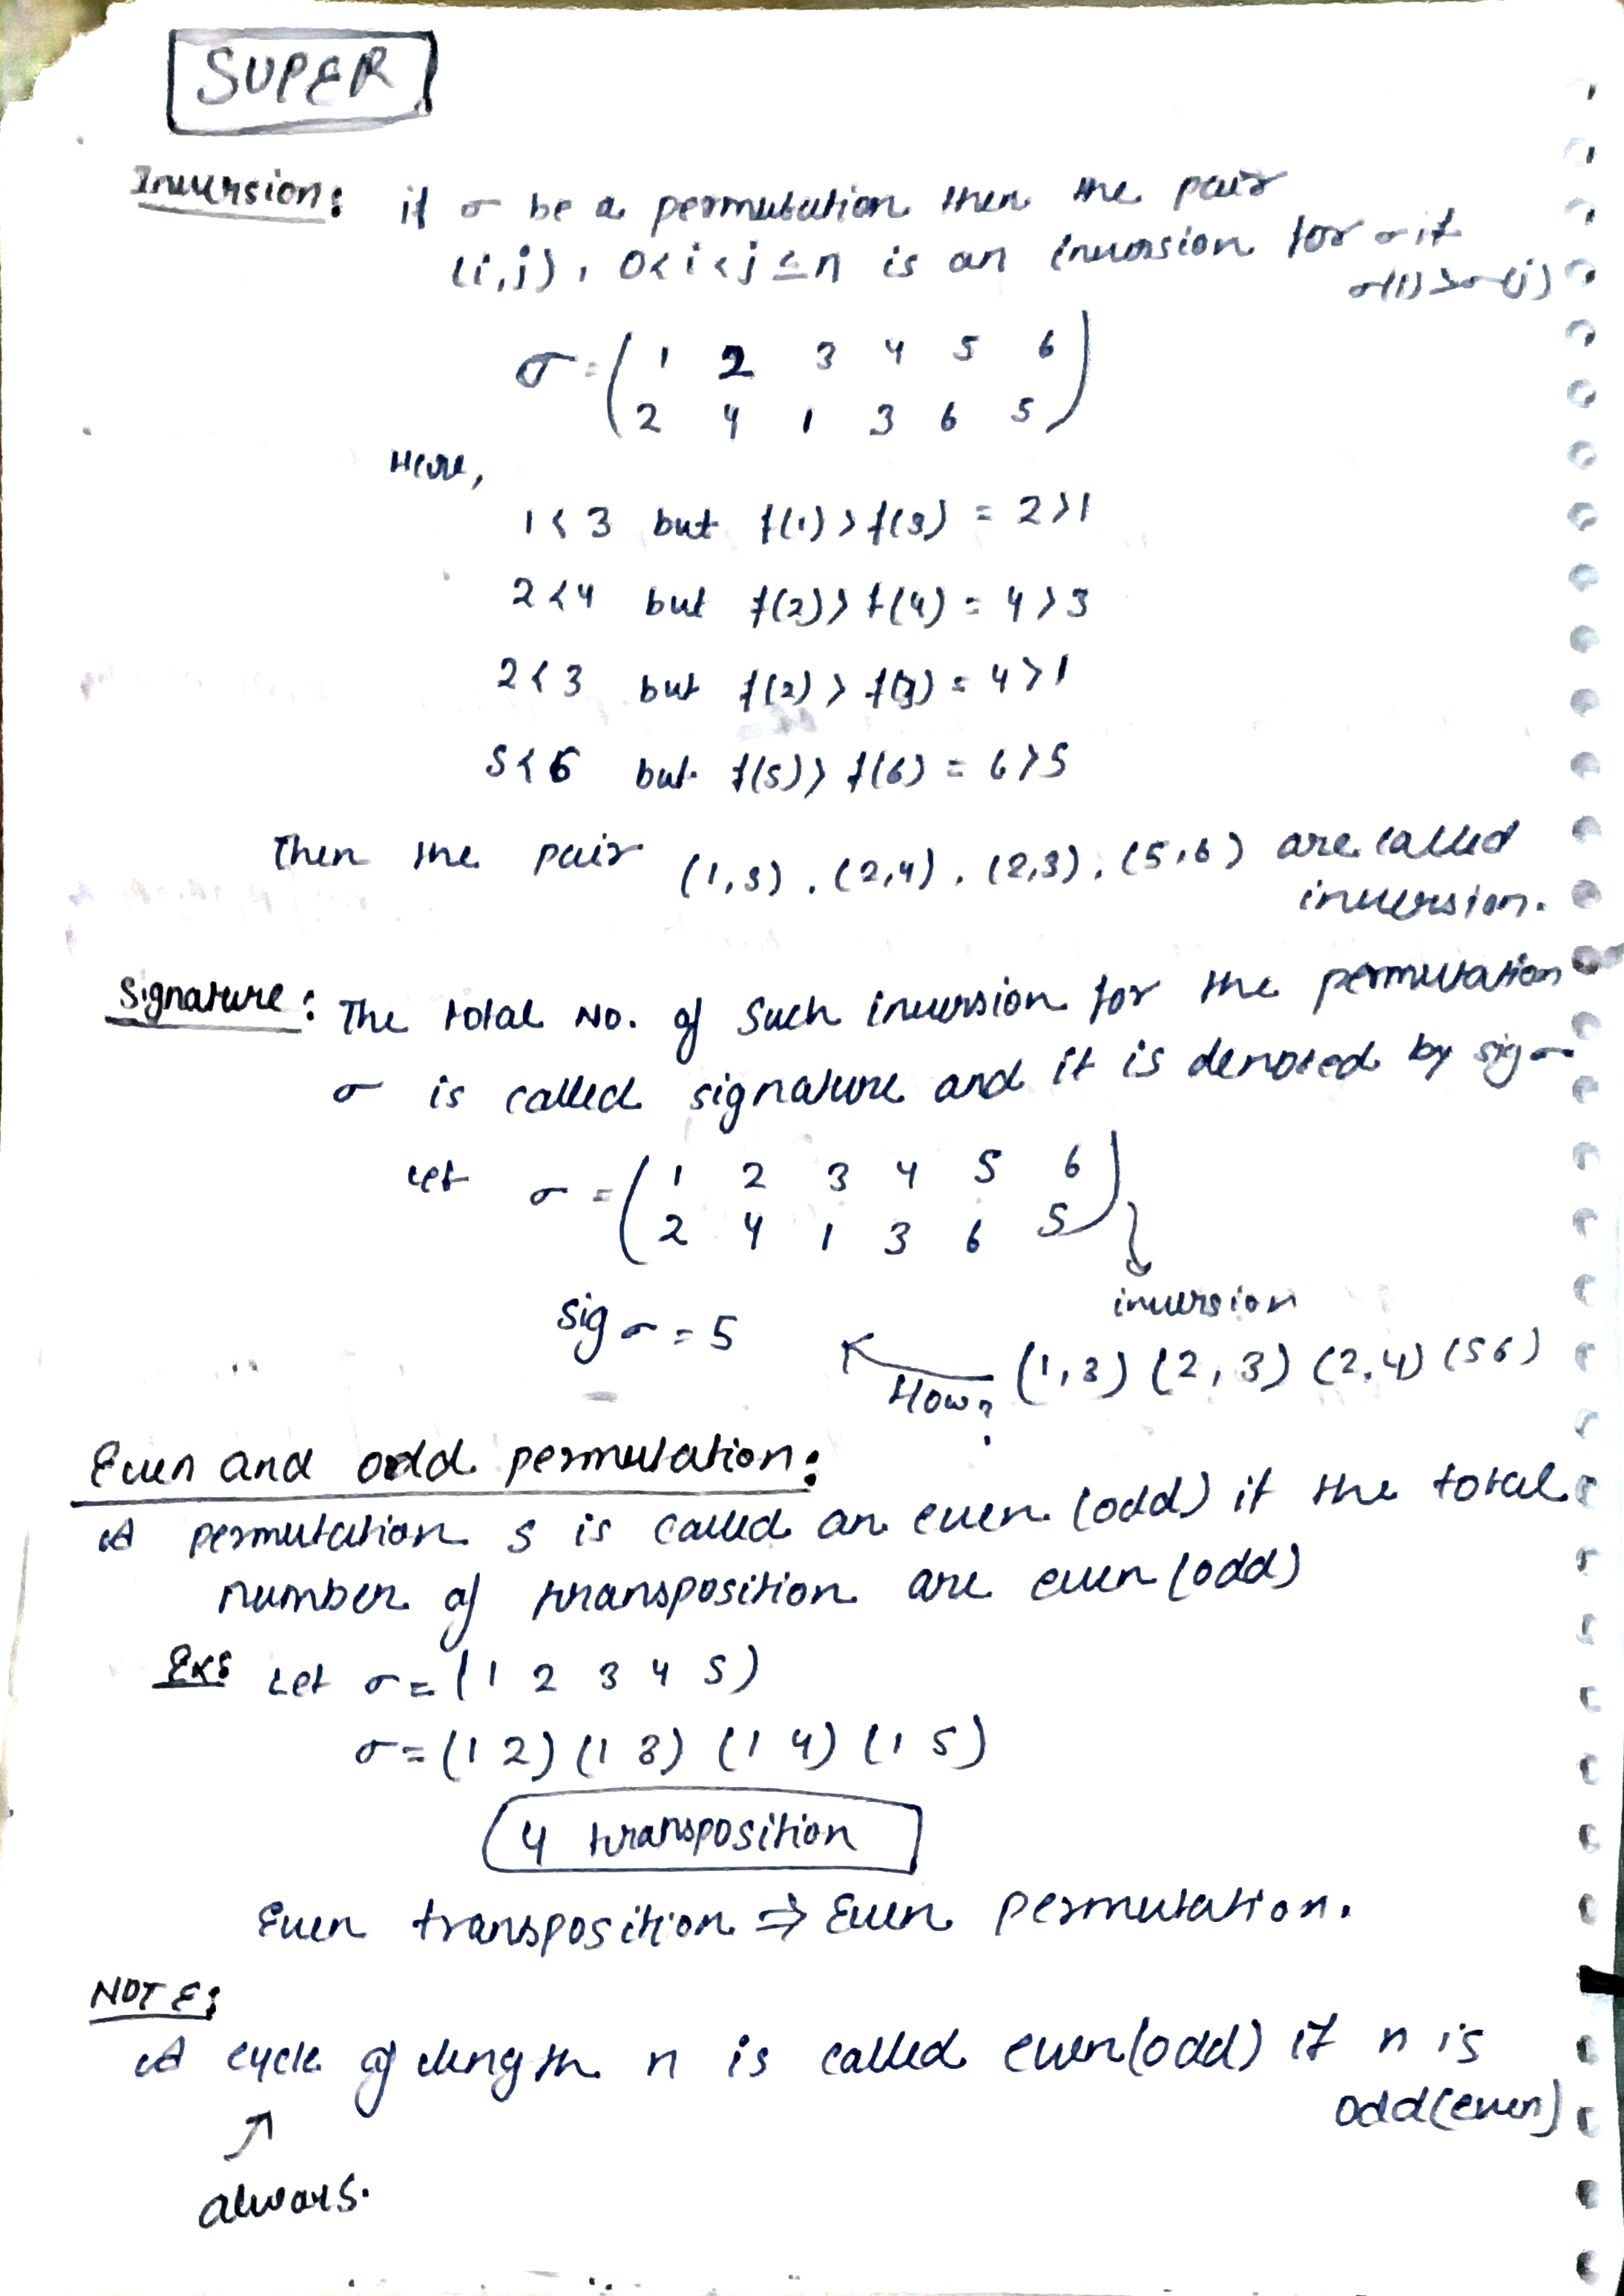 SUPER
Inversion: if σ be a permutation then the pair
(i,j), 0<i<j≤n is an inversion for σ if
σ(i)>σ(j)
σ = ( 1 2 3 4 5 6
2 4 1 3 6 5 )
Here,
1<3 but f(1)>f(3) = 2>1
2<4 but f(2)>f(4) = 4>3
2<3 but f(2)>f(3) = 4>1
5<6 but f(5)>f(6) = 6>5
Then the pair (1,3), (2,4), (2,3), (5,6) are called
inversion.
Signature: The total No. of Such inversion for the permutation
σ is called signature and it is denoted by sig σ
Let σ = ( 1 2 3 4 5 6
2 4 1 3 6 5 )
inversion
sig σ = 5
How? (1,3) (2,3) (2,4) (5 6)
Even and odd permutation:
A permutation s is called an even (odd) if the total
number of transposition are even (odd)
Ex: Let σ = (1 2 3 4 5)
σ = (1 2) (1 3) (1 4) (1 5)
4 transposition
Even transposition ⇒ Even permutation.
NOTE:
A cycle of length n is called even(odd) if n is
odd(even)
↑
always.